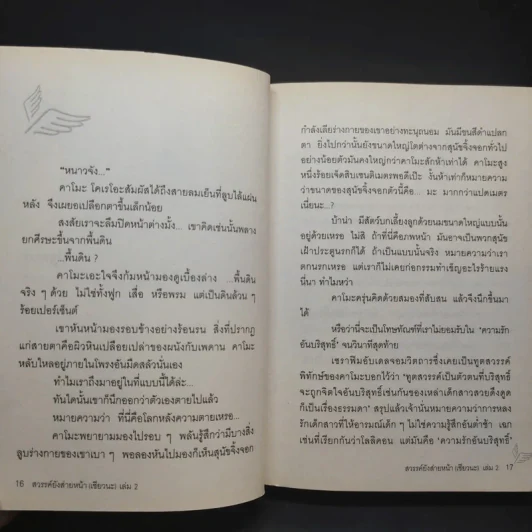 "หนาวจัง..."
คาโมะ โคเรโอะสัมผัสได้ถึงสายลมเย็นที่ลูบไล้แผ่น
หลัง จึงเผยอเปลือกตาขึ้นเล็กน้อย
สงสัยเราจะลืมปิดหน้าต่างมั้ง... เขาคิดเช่นนั้นพลาง
ยกศีรษะขึ้นจากพื้นดิน
...พื้นดิน ?
คาโมะเอะใจจึงก้มหน้ามองดูเบื้องล่าง ...พื้นดิน
จริง ๆ ด้วย ไม่ใช่ทั้งฟูก เสื่อ หรือพรม แต่เป็นดินล้วน ๆ
ร้อยเปอร์เซ็นต์
เขาหันหน้ามองรอบข้างอย่างร้อนรน สิ่งที่ปรากฏ
แก่สายตาคือผิวหินเปลือยเปล่าของผนังกับเพดาน คาโมะ
หลับใหลอยู่ภายในโพรงอันมืดสลัวนั่นเอง
ทำไมเราถึงมาอยู่ในที่แบบนี้ได้ล่ะ...
ทันใดนั้นเขาก็นึกออกว่าตัวเองตายไปแล้ว
หมายความว่า ที่นี่คือโลกหลังความตายเหรอ...
คาโมะพยายามมองไปรอบ ๆ พลันรู้สึกว่ามีบางสิ่ง
ลูบร่างกายของเขาเบา ๆ พอลองหันไปมองก็เห็นสุนัขจิ้งจอก
16 สวรรค์ยังส่ายหน้า (เซียวนะ) เล่ม 2
กำลังเลียร่างกายของเขาอย่างทะนุถนอม มันมีขนสีดำแปลก
ตา ยิ่งไปกว่านั้นยังขนาดใหญ่โตต่างจากสุนัขจิ้งจอกทั่วไป
อย่างน้อยตัวมันคงใหญ่กว่าคาโมะสักห้าเท่าได้ คาโมะสูง
หนึ่งร้อยเจ็ดสิบเซนติเมตรพอดีเป๊ะ งั้นห้าเท่าก็หมายความ
ว่าขนาดของสุนัขจิ้งจอกตัวนี้คือ... มะ มากกว่าแปดเมตร
เนี่ยนะ...?
บ้าน่า มีสัตว์บกเลี้ยงลูกด้วยนมขนาดใหญ่แบบนั้น
อยู่ด้วยเหรอ ไม่สิ ถ้าที่นี่คือภพหน้า มันอาจเป็นพวกสุนัข
เฝ้าประตูนรกก็ได้ ถ้าเป็นแบบนั้นจริง หมายความว่าเรา
ตกนรกเหรอ แต่เราก็ไม่เคยก่อกรรมทำเข็ญอะไรร้ายแรง
นี่นา ทำไมหว่า
คาโมะครุ่นคิดด้วยสมองที่สับสน แล้วจึงนึกขึ้นมา
ได้
หรือว่านี่จะเป็นโทษทัณฑ์ที่เราไม่ยอมรับใน 'ความรัก
อันบริสุทธิ์' จนวินาทีสุดท้าย
เซราฟิมอับเดลจอมวิตถารซึ่งเคยเป็นทูตสวรรค์
พิทักษ์ของคาโมะบอกไว้ว่า 'ทูตสวรรค์เป็นตัวตนที่บริสุทธิ์
จะถูกจิตใจอันบริสุทธิ์เช่นกันของเหล่าเด็กสาวสวยดึงดูด
ก็เป็นเรื่องธรรมดา' สรุปแล้วเจ้านั่นหมายความว่าการหลง
รักเด็กสาวที่ให้อารมณ์เด็ก ๆ ไม่ใช่ความรู้สึกอันต่ำช้า เฉก
เช่นที่เรียกกันว่าโลลิคอน แต่มันคือ 'ความรักอันบริสุทธิ์'
สวรรค์ยังส่ายหน้า (เซียวนะ) เล่ม 2 17